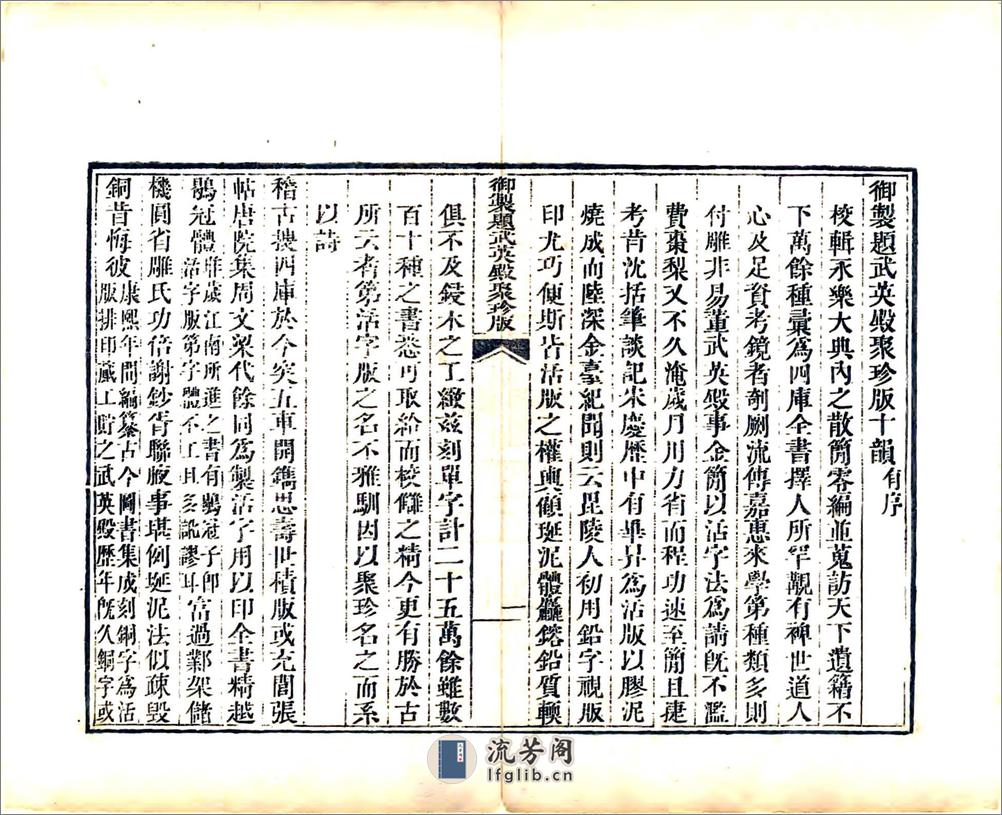 御製題武英殿聚珍版十韻有序
校輯永樂大典內之散簡零編並蒐訪天下遺籍不
下萬餘種彙為四庫全書擇人所罕覯有裨世道人
心及足資考鏡者剞劂流傳嘉惠來學第種類多則
付雕非易董武英殿事金簡以活字法為請既不濫
費棗棃又不久淹歲月用力省而程功速至簡且捷
考昔沈括筆談記宋慶曆中有畢昇為活版以膠泥
燒成而陸深金臺紀聞則云毘陵人初用鉛字視版
印尤巧便斯皆活版之權輿顧埏泥體麤鎔鉛質輭
御製題武英殿聚珍版
一
俱不及鋟木之工緻茲刻單字計二十五萬餘雖數
百十種之書悉可取給而校讎之精今更有勝於古
所云者第活字版之名不雅馴因以聚珍名之而系
以詩
稽古搜四庫於今突五車開鐫思壽世積版或充閭張
帖唐院集周文梁代餘同為製活字用以印全書精越
鶡冠體昨歲江南所進之書有鶡冠子即活字版第字體不工且多訛謬耳富過鄴架儲
機圓省雕氏功倍謝鈔胥聯腋事堪例埏泥法似疎毀
銅昔悔彼康熙年間編纂古今圖書集成刻銅字為活版排印蕆工貯之武英殿歷年既久銅字或
流芳阁
lfglib.cn